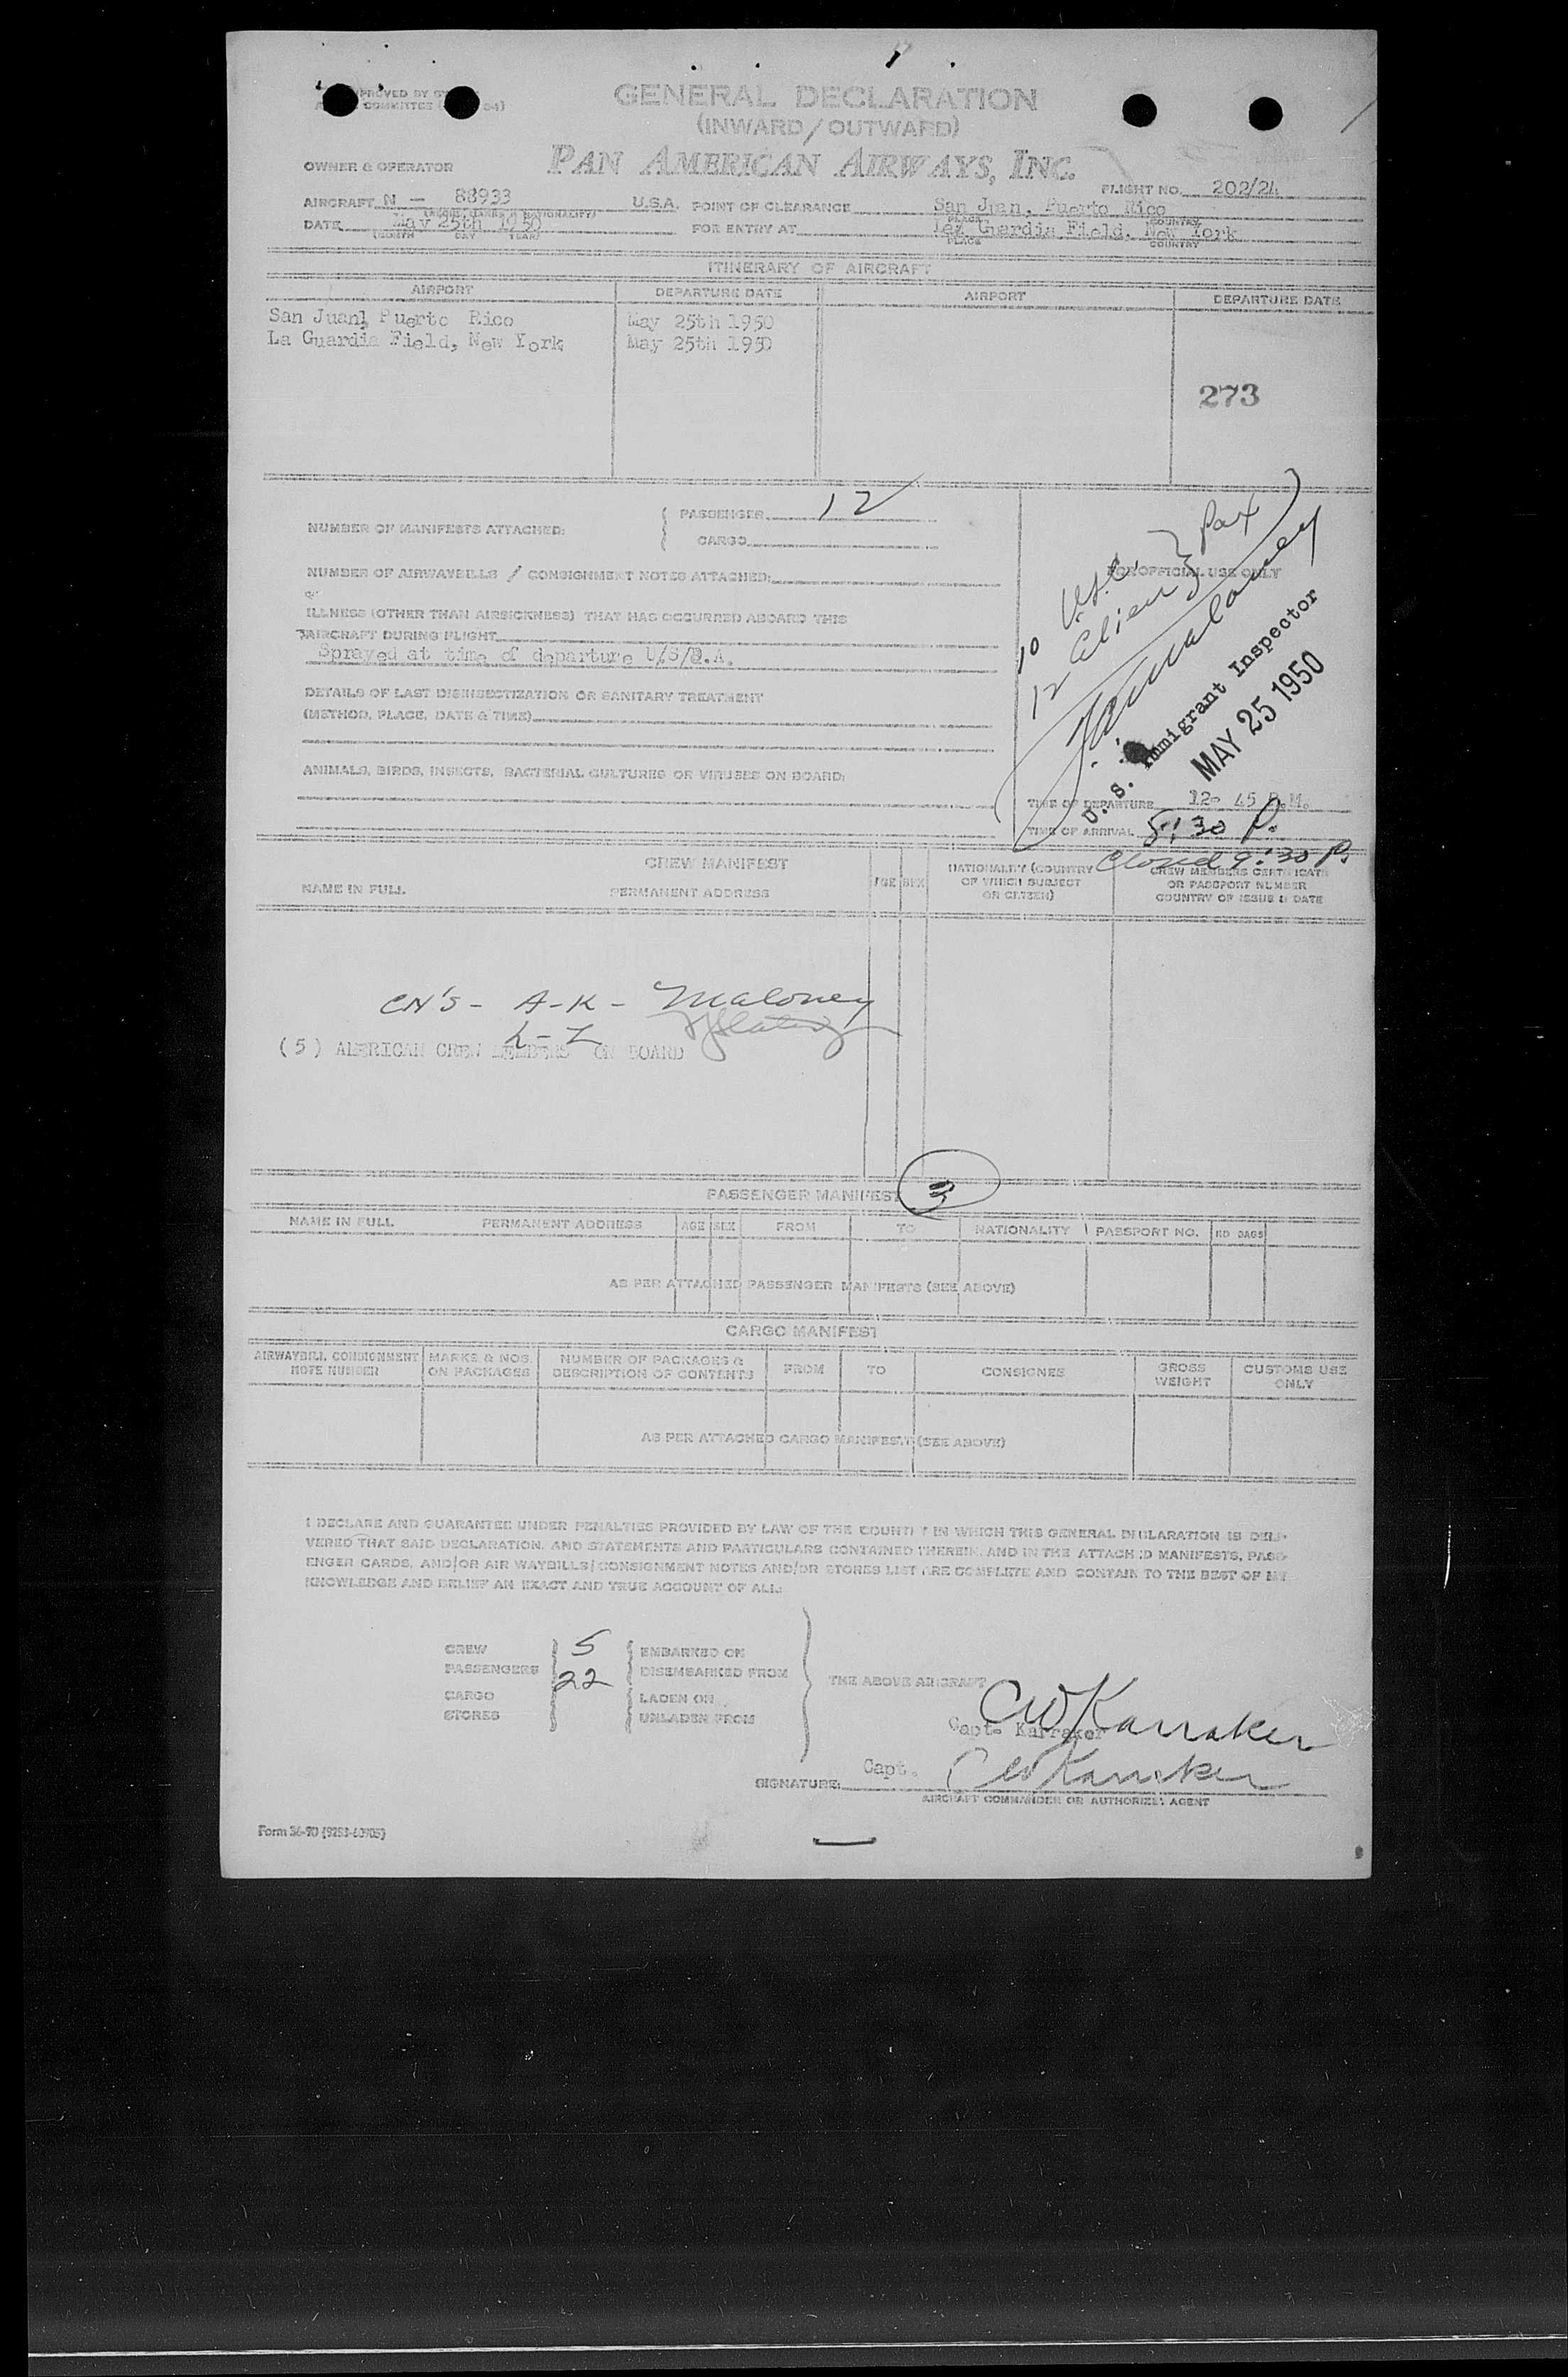 GENERAL DECLARATION
(INWARD/OUTWARD)
OWNER & OPERATOR
PAN AMERICAN AIRWAYS, INC.
FLIGHT NO. 202/24
AIRCRAFT N — 88933 U.S.A. POINT OF CLEARANCE San Juan, Puerto Rico
PLACE COUNTRY
DATE May 25th 1950 FOR ENTRY AT Guardia Field, New York
(MONTH DAY YEAR) PLACE COUNTRY
ITINERARY OF AIRCRAFT
AIRPORT DEPARTURE DATE AIRPORT DEPARTURE DATE
San Juan, Puerto Rico May 25th 1950
La Guardia Field, New York May 25th 1950
273
NUMBER OF MANIFESTS ATTACHED: { PASSENGER 12
CARGO
NUMBER OF AIRWAYBILLS / CONSIGNMENT NOTES ATTACHED:
ILLNESS (OTHER THAN AIRSICKNESS) THAT HAS OCCURRED ABOARD THIS
AIRCRAFT DURING FLIGHT
Sprayed at time of departure
DETAILS OF LAST DISINSECTIZATION OR SANITARY TREATMENT
(METHOD, PLACE, DATE & TIME)
ANIMALS, BIRDS, INSECTS, BACTERIAL CULTURES OR VIRUSES ON BOARD:
FOR OFFICIAL USE ONLY
10 U.S.C. } Pax
12 Alien
U. S. Immigrant Inspector
MAY 25 1950
TIME OF DEPARTURE 12- 45 P.M.
TIME OF ARRIVAL 8:30 P.
Closed 9:30 P.
CREW MANIFEST
NAME IN FULL PERMANENT ADDRESS AGE SEX NATIONALITY (COUNTRY OF WHICH SUBJECT OR CITIZEN) CREW MEMBERS CERTIFICATE OR PASSPORT NUMBER COUNTRY OF ISSUE & DATE
CN'S - A-K - Maloney
L-Z
(5) AMERICAN CREW MEMBERS ON BOARD
3
PASSENGER MANIFEST
NAME IN FULL PERMANENT ADDRESS AGE SEX FROM TO NATIONALITY PASSPORT NO. NO BAGS
AS PER ATTACHED PASSENGER MANIFESTS (SEE ABOVE)
CARGO MANIFEST
AIRWAYBILL CONSIGNMENT NOTE NUMBER MARKS & NOS. ON PACKAGES NUMBER OF PACKAGES & DESCRIPTION OF CONTENTS FROM TO CONSIGNEE GROSS WEIGHT CUSTOMS USE ONLY
AS PER ATTACHED CARGO MANIFEST (SEE ABOVE)
I DECLARE AND GUARANTEE UNDER PENALTIES PROVIDED BY LAW OF THE COUNTRY IN WHICH THIS GENERAL DECLARATION IS DELI-
VERED THAT SAID DECLARATION, AND STATEMENTS AND PARTICULARS CONTAINED THEREIN, AND IN THE ATTACHED MANIFESTS, PASS-
ENGER CARDS, AND/OR AIR WAYBILLS/CONSIGNMENT NOTES AND/OR STORES LIST ARE COMPLETE AND CONTAIN TO THE BEST OF MY
KNOWLEDGE AND BELIEF AN EXACT AND TRUE ACCOUNT OF ALL:
CREW 5 EMBARKED ON
PASSENGERS 22 DISEMBARKED FROM
THE ABOVE AIRCRAFT
CARGO LADEN ON
STORES UNLADEN FROM
CW Karraker
Capt. Karraker
SIGNATURE: Capt. CW Karraker
AIRCRAFT COMMANDER OR AUTHORIZED AGENT
Form 36-90 (9253-60905)